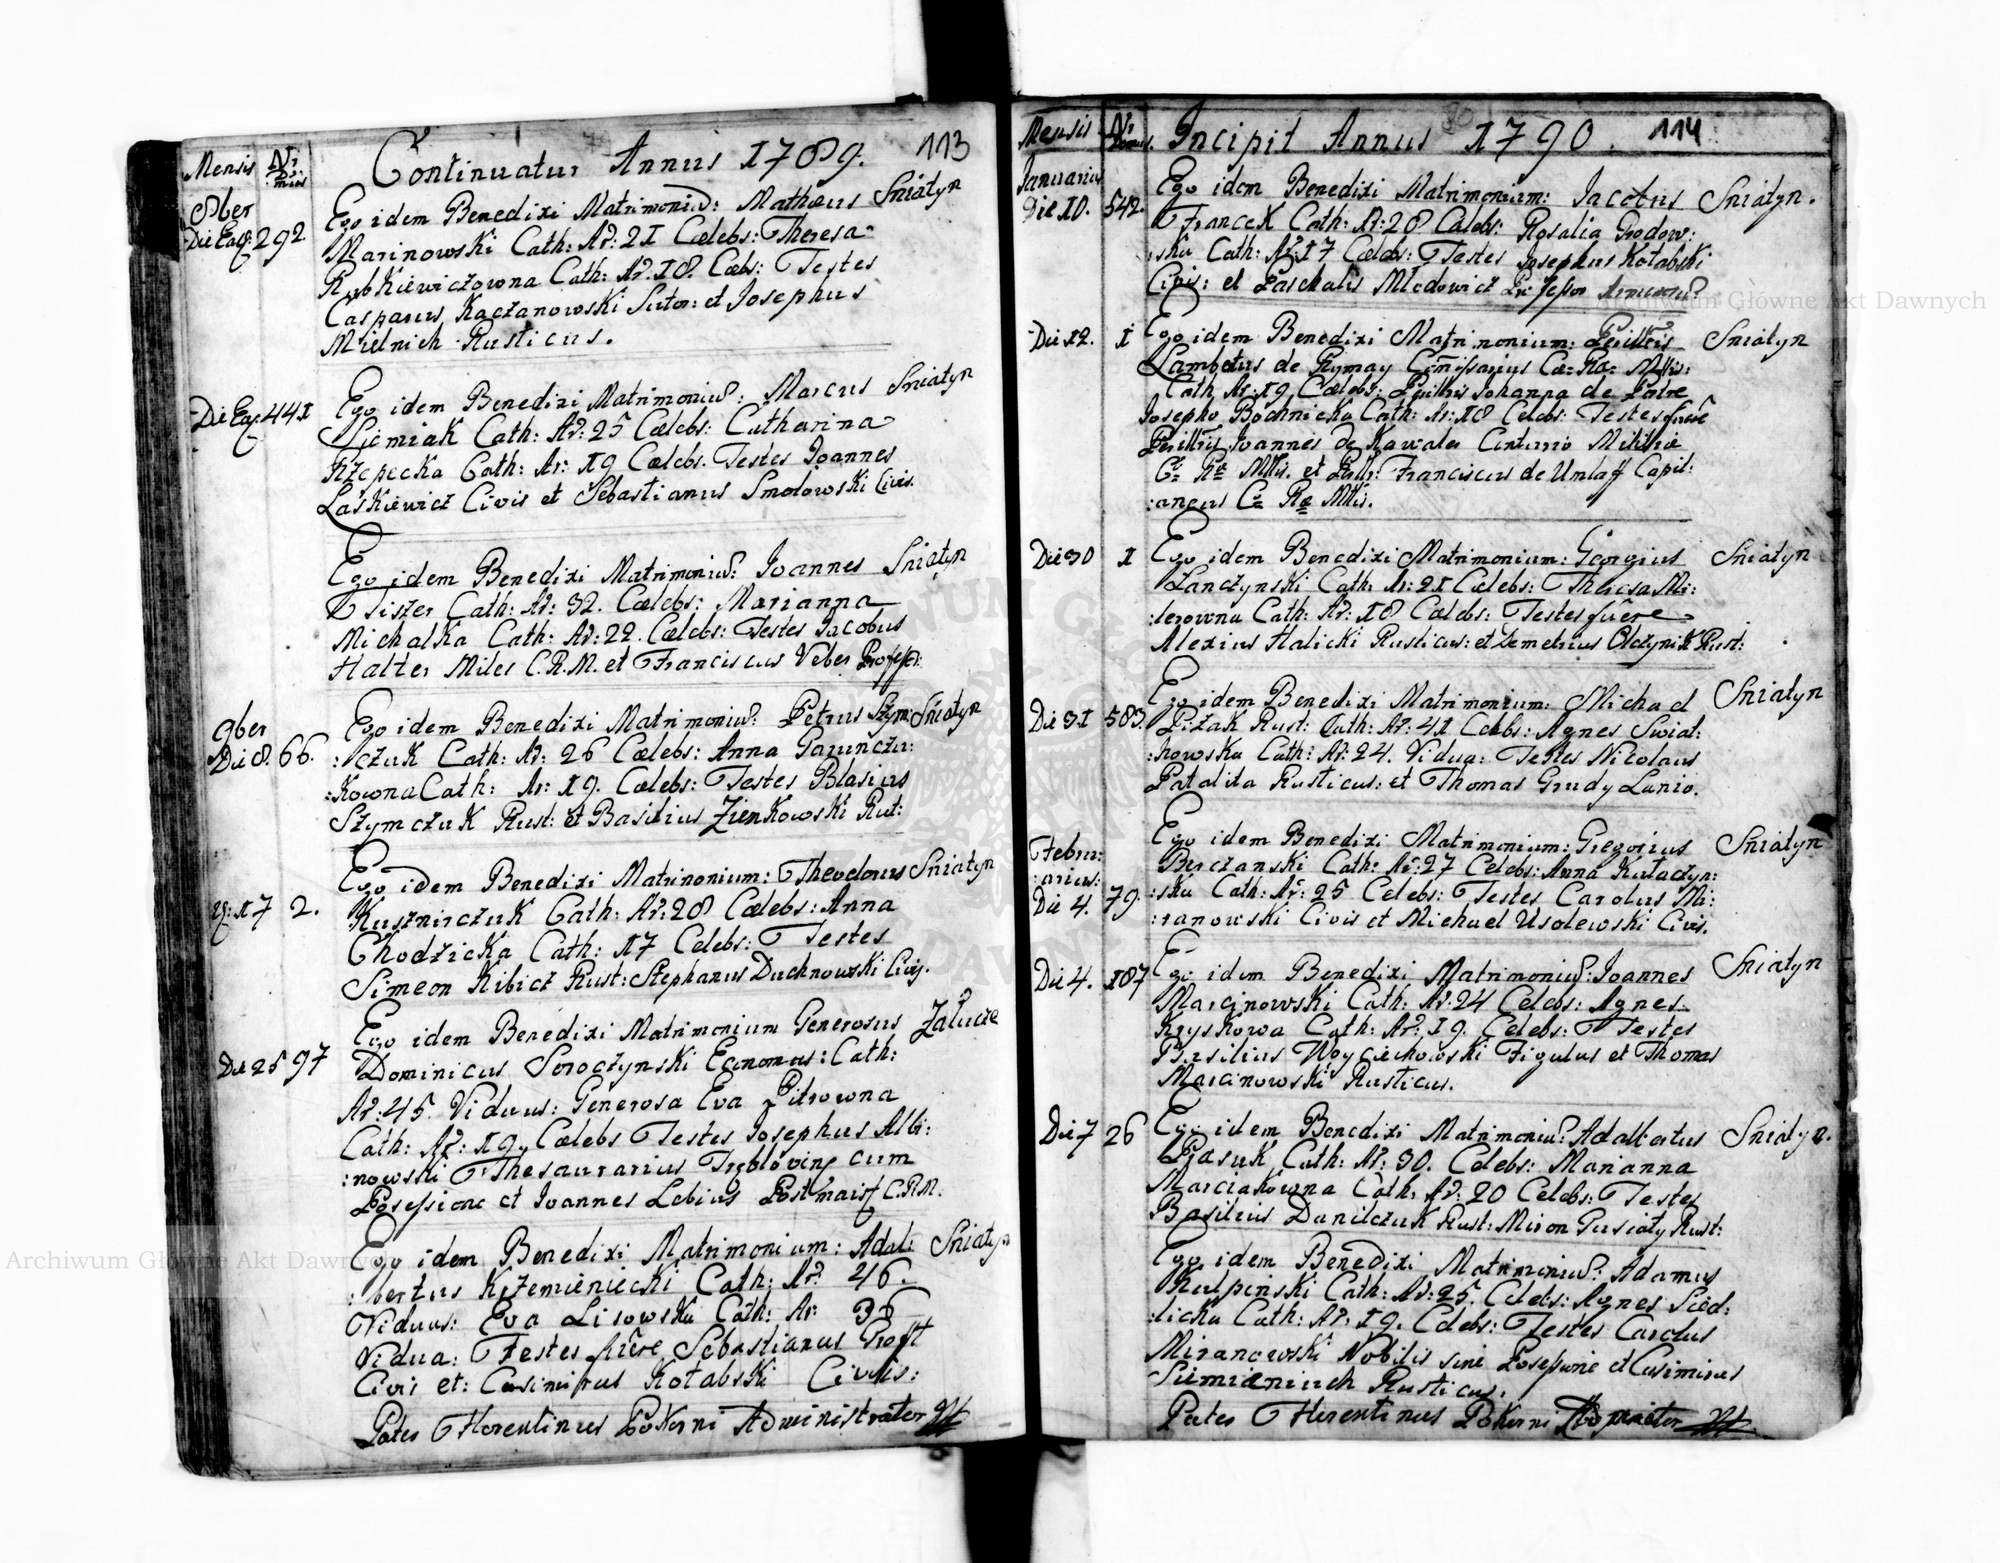 Mensis Nr: Domus Continuatur Annus 1789. 113
8ber
Die Eaq: 292.
Ego idem Benedixi Matrimoniu: Mathæus Sniatyn
Marinowski Cath: Ar: 21 Cælebs: Theresa
Rybkiewiczowna Cath: Ar. 18. Cæbs: Testes
Casparus Kaczanowski Sutor: et Josephus
Mielnich Rusticus.
Die Eaq: 441
Ego idem Benedixi Matrimoniu: Marcus Sniatyn
Ziemiak Cath: Ar: 25 Cælebs: Catharina
Rzepecka Cath: Ar: 19 Cælebs. Testes Joannes
Laskiewicz Civis et Sebastianus Smolowski Civis.
Ego idem Benedixi Matrimoniu: Joannes Sniatyn
Tiszer Cath: Ar: 32. Cælebs: Marianna
Michalka Cath: Ar: 22. Cælebs: Testes Jacobus
Halter Miles C.R.M. et Franciscus Veber Professor:
9ber
Die 8. 66.
Ego idem Benedixi Matrimoniu: Petrus Szym: Sniatyn
:czuk Cath: Ar: 26 Cælebs: Anna
:kowna Cath: Ar: 19. Cælebs: Testes Blasius
Szymczuk Rust: et Basilius Zienkowski Rut:
17 2.
Ego idem Benedixi Matrimonium: Theodorus Sniatyn
Kusznirczuk Cath: Ar: 28 Cælebs: Anna
Chodzicka Cath: 17 Celebs: Testes
Simeon Kibicz Rust: Stephanus Duchnowski Civis.
Die 25 97
Ego idem Benedixi Matrimonium Generosus Załucze
Dominicus Soroczynski Economus: Cath:
Ar: 45. Viduus: Generosa Eva Pitrowna
Cath: Ar: 19. Cælebs Testes Josephus Albi:
:nowski Thesaurarius cum
Possessione et Joannes Lebius Postmaist C.R.M.
Ego idem Benedixi Matrimonium: Adal: Sniatyn
:bertus Krzemieniecki Cath: Ar: 46.
Viduus: Eva Lisowska Cath: Ar: 36
Vidua: Testes fuere Sebastianus Groft
Civis et: Casimirus Kotabski Civis:
Pater Florentinus Pokorni Administrator
Mensis Nr: Domus. Incipit Annus 1790. 114
Januarius
Die 10. 542.
Ego idem Benedixi Matrimonium: Jacobus Sniatyn.
Francek Cath: Ar: 28 Cælebs: Rosalia Grodow:
:ska Cath: Ar: 17 Cælebs: Testes Josephus Kotabski
Civis: et Paschalis Miedowicz
Die 12. 1
Ego idem Benedixi Matrimonium: Perillris Sniatyn
Lambetus de Rymay Comissarius Cæ= Ræ= Mttis:
Cath Ar: 19 Cælebs: Perillris Johanna de Patre
Josepho Bochnicka Cath: Ar: 18 Celebs: Testes fuere
Perillris Joannes de Kawales Centurio Militiæ
Cæ Ræ Mttis. et Perillr: Franciscus de Umlaff Capit:
:aneus Cæ Ræ Mttis.
Die 30 1
Ego idem Benedixi Matrimonium: Georgius Sniatyn
Lanczynski Cath: Ar: 21 Cælebs: Theresa Mi:
:lerowna Cath: Ar: 18 Cælebs: Testes fuere
Alexius Halicki Rusticus: et Demetrius Olczynik Rust:
Die 31 583.
Ego idem Benedixi Matrimonium: Michael Sniatyn
Pizak Rust: Cath: Ar: 41 Celebs: Agnes Swiat:
:kowska Cath: Ar: 24. Vidua: Testes Nicolaus
Patalita Rusticus: et Thomas Grudy Lanio.
Febru:
:arius:
Die 4. 79.
Ego idem Benedixi Matrimonium: Gregorius Sniatyn
Berczanski Cath: Ar: 27 Celebs: Anna Kułaczyn:
:ska Cath: Ar: 25 Celebs: Testes Carolus Mi:
:ranowski Civis et Michael Usolewski Civis.
Die 4. 187
Ego idem Benedixi Matrimoniu: Joannes Sniatyn
Marcinowski Cath: Ar: 24 Celebs: Agnes
Kryskowa Cath: Ar: 19. Celebs: Testes
Basilius Woyciechowski Figulus et Thomas
Marcinowski Rusticus.
Die 7 26
Ego idem Benedixi Matrimoniu: Adalbertus Sniatyn.
Piasuk Cath: Ar: 30. Celebs: Marianna
Marciakowna Cath: Ar: 20 Celebs: Testes
Basilius Danilczuk Rust: Miron Gusiaty Rust:
Ego idem Benedixi Matrimoniu: Adamus
Kulpinski Cath: Ar: 25. Celebs: Agnes Sied:
:licka Cath: Ar: 19. Celebs: Testes Carolus
Miranowski Nobilis sine Possesione et Casimirus
Siemianiuch Rusticus.
Pater Florentinus Pokorni
Archiwum Główne Akt Dawnych
Archiwum Główne Akt Dawnych